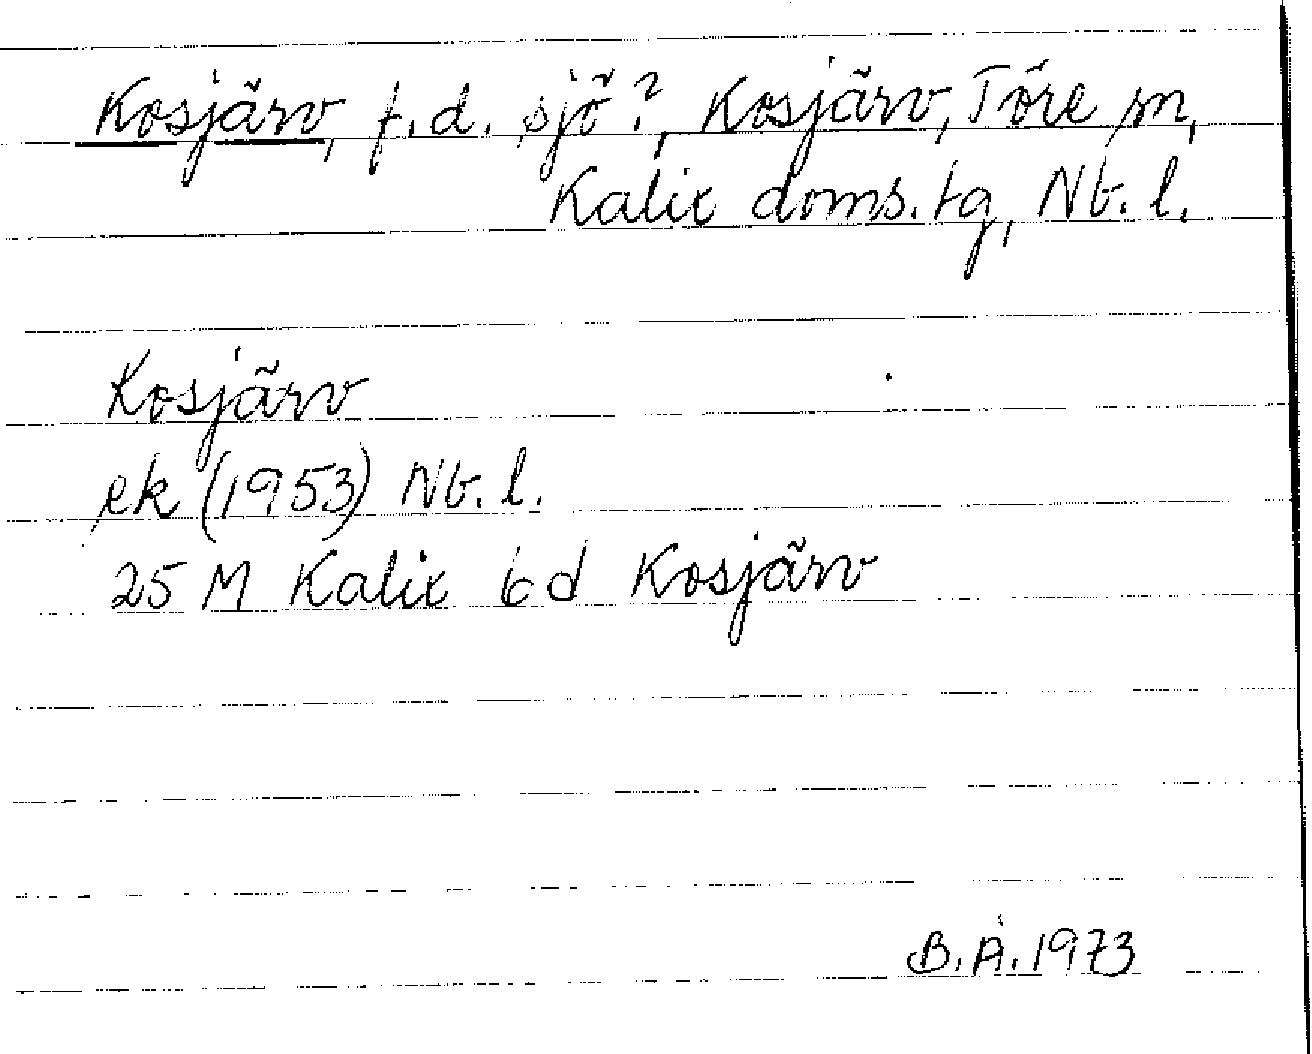 Kosjärv, f.d. sjö?, Kosjärv, Töre sn,
Kalix doms.tg, Nb.l.
Kosjärv
ek (1953) Nb.l.
25 M Kalix 6d Kosjärv
B.Å.1973